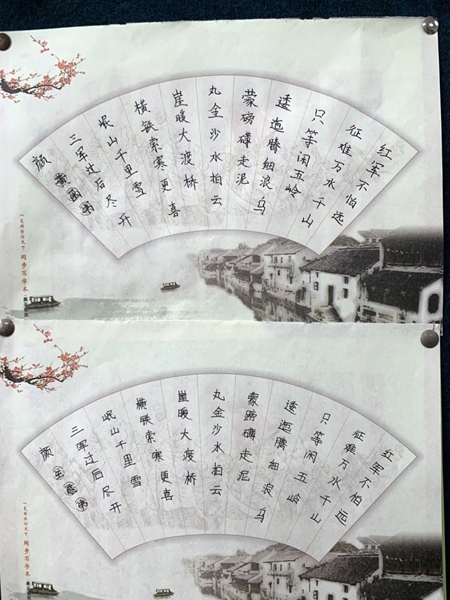 红军不怕远
征难万水千山
只等闲五岭
逶迤腾细浪乌
蒙磅礴走泥
丸金沙水拍云
崖暖大渡桥
横铁索寒更喜
岷山千里雪
三军过后尽开
颜
同步写字本
红军不怕远
征难万水千山
只等闲五岭
逶迤腾细浪乌
蒙磅礴走泥
丸金沙水拍云
崖暖大渡桥
横铁索寒更喜
岷山千里雪
三军过后尽开
颜
同步写字本